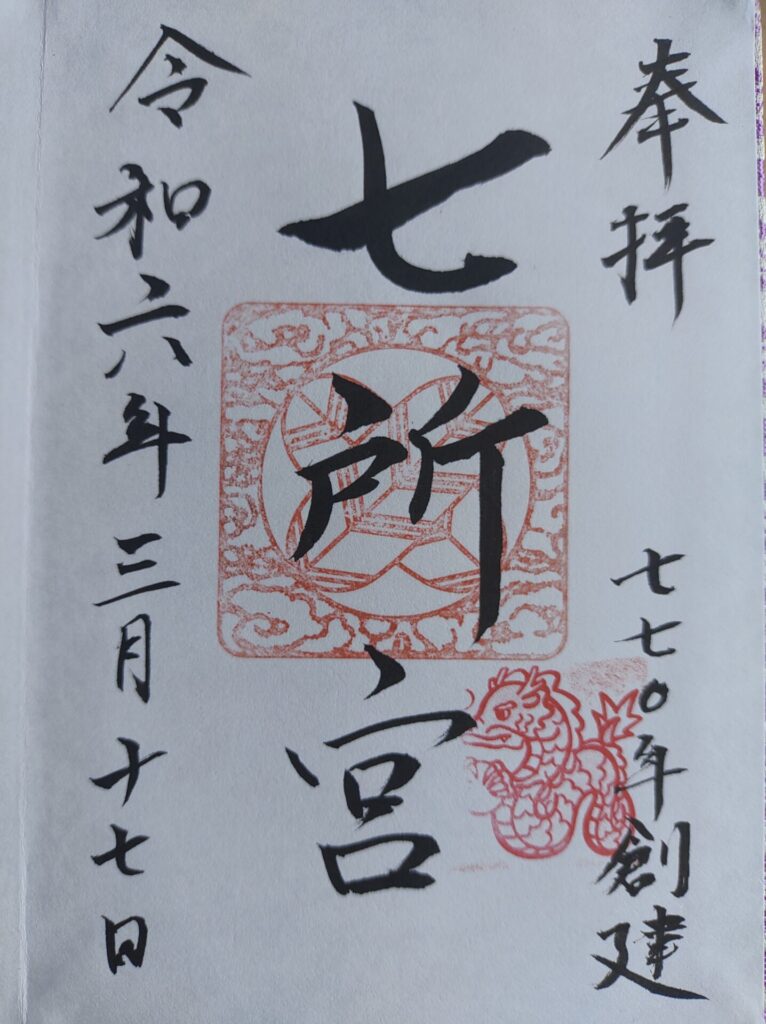 奉拝
七七〇年創建
七所宮
令和六年三月十七日